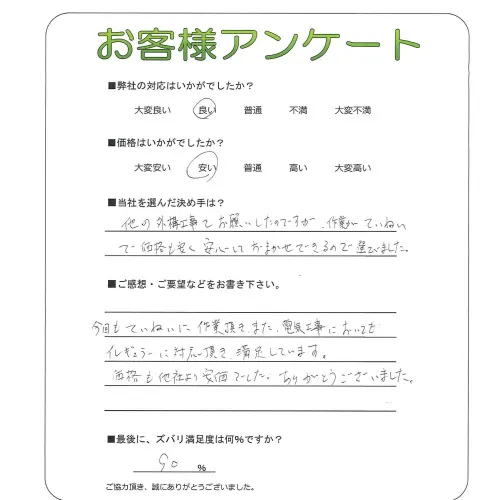 お客様アンケート
■弊社の対応はいかがでしたか？
大変良い 良い 普通 不満 大変不満
■価格はいかがでしたか？
大変安い 安い 普通 高い 大変高い
■当社を選んだ決め手は？
他の外構工事でお願いしたのですが、作業がていねい
で価格も安く安心しておまかせできるので選びました。
■ご感想・ご要望などをお書き下さい。
今回もていねいに作業頂き、また、電気工事においても
イレギュラーに対応頂き、満足しています。
価格も他社より安価でした。ありがとうございました。
■最後に、ズバリ満足度は何％ですか？
90 %
ご協力頂き、誠にありがとうございました。